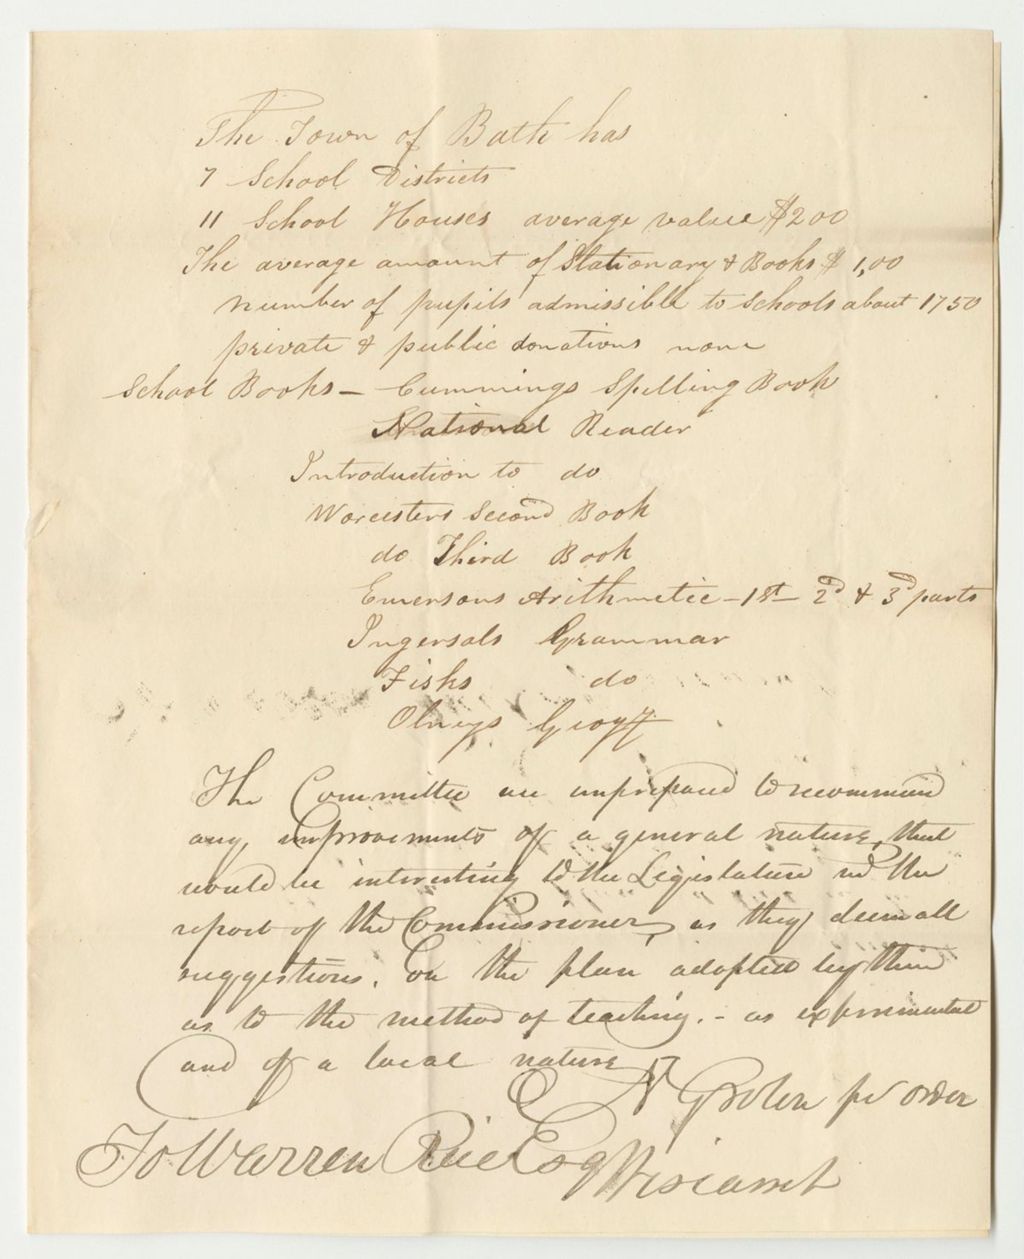 The Town of Bath has
7 School Districts
11 School Houses average value $200
The average amount of Stationary & Books $ 1,00
number of pupils admissible to Schools about 1750
private & public donations none
School Books - Cummings Spelling Book
National Reader
Introduction to do
Worcesters Second Book
do Third Book
Emersons Arithmetic - 1st - 2d & 3d parts
Ingersols Grammar
Fisks do
Olneys Geogy
The Committee are unprepared to recommend
any improvements of a general nature, that
would be interesting to the Legislature in the
report of the Commissioner, as they deem all
suggestions. on the plan adopted by them
as to the method of teaching. - as experimental
and of a local nature
N Groton pr order
To Warren Rice Esq Wiscasset